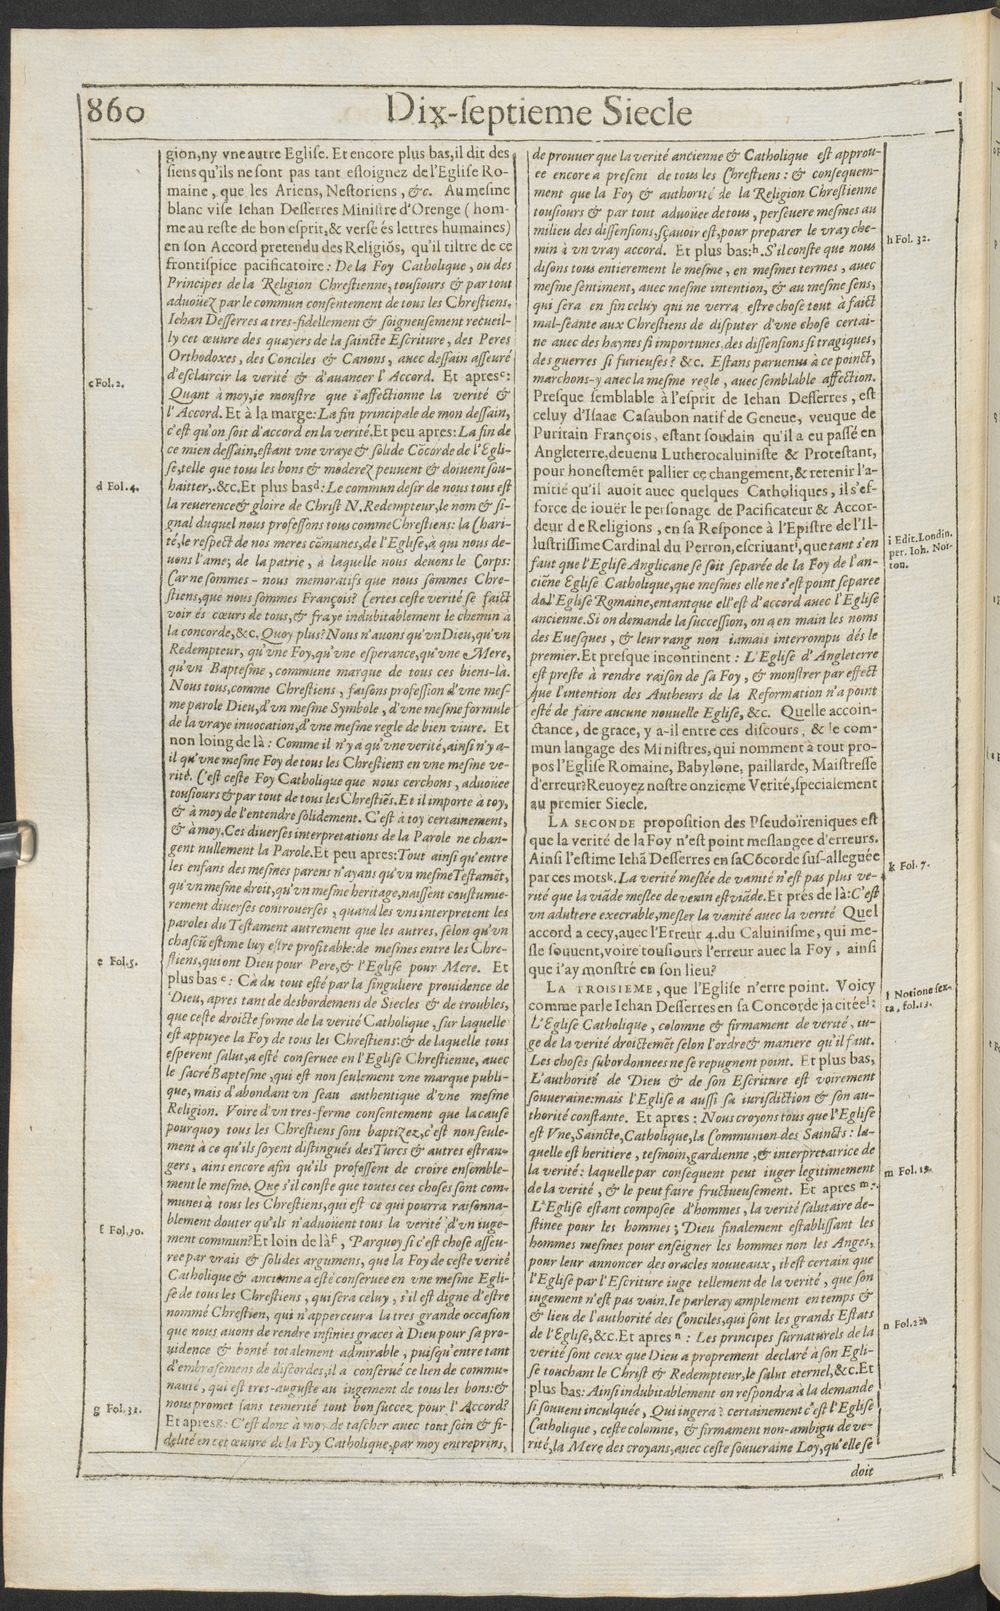 860
Dix-ſeptieme Siecle
gion, ny vne autre Egliſe. Et encore plus bas, il dit des
ſiens qu'ils ne ſont pas tant eſloignez de l'Egliſe Ro-
maine, que les Ariens, Neſtoriens, &c. Au meſme
blanc viſe Iehan Deſſerres Miniſtre d'Orenge (hom-
me au reſte de bon eſprit, & verſé és lettres humaines)
en ſon Accord pretendu des Religiõs, qu'il tiltre de ce
frontiſpice pacificatoire: De la Foy Catholique, ou des
Principes de la Religion Chreſtienne, touſiours & par tout
aduoüez par le commun conſentement de tous les Chreſtiens.
Iehan Deſſerres a tres-fidellement & ſoigneuſement recueil-
ly cet œuvre des quayers de la ſaincte Eſcriture, des Peres
Orthodoxes, des Conciles & Canons, auec deſſain aſſeuré
d'eſclaircir la verité & d'auancer l'Accord. Et apres c:
c Fol. 2.
Quant à moy, ie monſtre que i'affectionne la verité &
l'Accord. Et à la marge: La fin principale de mon deſſain,
c'eſt qu'on ſoit d'accord en la verité. Et peu apres: La fin de
ce mien deſſain, eſtant vne vraye & ſolide Cõcorde de l'Egli-
ſe, telle que tous les bons & moderez peuuent & doiuent ſou-
haitter, &c. Et plus bas d: Le commun deſir de nous tous eſt
d Fol. 4.
la reuerence & gloire de Chriſt N. Redempteur, le nom & ſi-
gnal duquel nous profeſſons tous comme Chreſtiens: la Chari-
té, le reſpect de nos meres cõmunes, de l'Egliſe, à qui nous de-
uons l'ame; de la patrie, à laquelle nous deuons le Corps:
Car ne ſommes-nous memoratifs que nous ſommes Chre-
ſtiens, que nous ſommes François? Certes ceſte verité ſe faict
voir és cœurs de tous, & fraye indubitablement le chemin à
la concorde, &c. Quoy plus? Nous n'auons qu'vn Dieu, qu'vn
Redempteur, qu'vne Foy, qu'vne eſperance, qu'vne Mere,
qu'vn Bapteſme, commune marque de tous ces biens-là.
Nous tous, comme Chreſtiens, faiſons profeſſion d'vne meſ-
me parole Dieu, d'vn meſme Symbole, d'vne meſme formule
de la vraye inuocation, d'vne meſme regle de bien viure. Et
non loing de là: Comme il n'y a qu'vne verité, ainſi n'y a-
il qu'vne meſme Foy de tous les Chreſtiens en vne meſme ve-
rité. C'eſt ceſte Foy Catholique que nous cerchons, aduoüee
touſiours & par tout de tous les Chreſtiẽs. Et il importe à toy,
& à moy de l'entendre ſolidement. C'eſt à toy certainement,
& à moy. Ces diuerſes interpretations de la Parole ne chan-
gent nullement la Parole. Et peu apres: Tout ainſi qu'entre
les enfans des meſmes parens n'ayans qu'vn meſme Teſtamẽt,
qu'vn meſme droit, qu'vn meſme heritage, naiſſent couſtumie-
rement diuerſes controuerſes, quand les vns interpretent les
paroles du Teſtament autrement que les autres, ſelon qu'vn
chaſcũ eſtime luy eſtre profitable: de meſmes entre les Chre-
ſtiens, qui ont Dieu pour Pere, & l'Egliſe pour Mere. Et
e Fol. 5.
plus bas e: Ç'a du tout eſté par la ſinguliere prouidence de
Dieu, apres tant de desbordemens de Siecles & de troubles,
que ceſte droicte forme de la verité Catholique, ſur laquelle
eſt appuyee la Foy de tous les Chreſtiens: & de laquelle tous
eſperent ſalut, a eſté conſeruee en l'Egliſe Chreſtienne, auec
le ſacré Bapteſme, qui eſt non ſeulement vne marque publi-
que, mais d'abondant vn ſeau authentique d'vne meſme
Religion. Voire d'vn tres-ferme conſentement que la cauſe
pourquoy tous les Chreſtiens ſont baptizez, c'eſt non ſeule-
ment à ce qu'ils ſoyent diſtingués des Turcs & autres eſtran-
gers, ains encore afin qu'ils profeſſent de croire enſemble-
ment le meſme. Que s'il conſte que toutes ces choſes ſont com-
munes à tous les Chreſtiens, qui eſt ce qui pourra raiſonna-
blement douter qu'ils n'aduoüent tous la verité d'vn iuge-
ment commun? Et loin de là f, Parquoy ſi c'eſt choſe aſſeu-
f Fol. 30.
ree par vrais & ſolides argumens, que la Foy de ceſte verité
Catholique & ancienne a eſté conſeruee en vne meſme Egli-
ſe de tous les Chreſtiens, qui ſera celuy, s'il eſt digne d'eſtre
nommé Chreſtien, qui n'apperceura la tres grande occaſion
que nous auons de rendre infinies graces à Dieu pour ſa pro-
uidence & bonté totalement admirable, puiſqu'entre tant
d'embraſemens de diſcordes, il a conſerué ce lien de commu-
nauté, qui eſt tres-auguſte au iugement de tous les bons: &
nous promet ſans temerité tout bon ſuccez pour l'Accord?
g Fol. 31.
Et apres g: C'eſt donc à moy de taſcher auec tout ſoin & fi-
delité en cet œuure de la Foy Catholique, par moy entreprins,
de prouuer que la verité ancienne & Catholique eſt approu-
ee encore a preſent de tous les Chreſtiens: & conſequem-
ment que la Foy & authorité de la Religion Chreſtienne
touſiours & par tout aduoüee de tous, perſeuere meſmes au
milieu des diſſenſions, ſçauoir eſt, pour preparer le vray che-
min à vn vray accord. Et plus bas: h. S'il conſte que nous
h Fol. 32.
diſons tous entierement le meſme, en meſmes termes, auec
meſme ſentiment, auec meſme intention, & au meſme ſens,
qui ſera en fin celuy qui ne verra eſtre choſe tout à faict
mal-ſeante aux Chreſtiens de diſputer d'vne choſe certai-
ne auec des haynes ſi importunes, des diſſenſions ſi tragiques,
des guerres ſi furieuſes? &c. Eſtans paruenus à ce poinct,
marchons-y auec la meſme regle, auec ſemblable affection.
Preſque ſemblable à l'eſprit de Iehan Deſſerres, eſt
celuy d'Iſaac Caſaubon natif de Geneue, veu que de
Puritain François, eſtant ſoudain qu'il a eu paſſé en
Angleterre, deuenu Lutherocaluiniſte & Proteſtant,
pour honeſtemẽt pallier ce changement, & retenir l'a-
mitié qu'il auoit auec quelques Catholiques, il s'ef-
force de ioüer le perſonage de Pacificateur & Accor-
deur de Religions, en ſa Reſponce à l'Epiſtre de l'Il-
luſtriſſime Cardinal du Perron, eſcriuant i, que tant s'en
i Edit. Londin.
per. Ioh. Nor-
ton.
faut que l'Egliſe Anglicane ſe ſoit ſeparée de la Foy de l'an-
ciẽne Egliſe Catholique, que meſmes elle ne s'eſt point ſeparee
de l'Egliſe Romaine, entant que ell'eſt d'accord auec l'Egliſe
ancienne. Si on demande la ſucceſſion, on a en main les noms
des Eueſques, & leur rang non iamais interrompu dés le
premier. Et preſque incontinent: L'Egliſe d'Angleterre
eſt preſte à rendre raiſon de ſa Foy, & monſtrer par effect
que l'intention des Autheurs de la Reformation n'a point
eſté de faire aucune nouuelle Egliſe, &c. Quelle accoin-
ctance, de grace, y a-il entre ces diſcours, & le com-
mun langage des Miniſtres, qui nomment à tout pro-
pos l'Egliſe Romaine, Babylone, paillarde, Maiſtreſſe
d'erreur? Reuoyez noſtre onzieme Verité, ſpecialement
au premier Siecle.
LA SECONDE propoſition des Pſeudoïreniques eſt
que la verité de la Foy n'eſt point meſlangee d'erreurs.
Ainſi l'eſtime Iehã Deſſerres en ſa Cõcorde ſuſ-alleguée
par ces mots k. La verité meſlée de vanité n'eſt pas plus ve-
k Fol. 7.
rité que la viãde meſlee de venin eſt viãde. Et prés de là: C'eſt
vn adultere execrable, meſler la vanité auec la verité Quel
accord a cecy, auec l'Erreur 4. du Caluiniſme, qui me-
ſle ſouuent, voire touſiours l'erreur auec la Foy, ainſi
que i'ay monſtré en ſon lieu?
LA TROISIEME, que l'Egliſe n'erre point. Voicy
comme parle Iehan Deſſerres en ſa Concorde ja citée l:
l Notione ſex-
ta, fol. 13.
L'Egliſe Catholique, colomne & firmament de verité, iu-
ge de la verité droictemẽt ſelon l'ordre & maniere qu'il faut.
Les choſes ſubordonnees ne ſe repugnent point. Et plus bas,
L'authorité de Dieu & de ſon Eſcriture eſt voirement
ſouueraine: mais l'Egliſe a auſſi ſa iuriſdiction & ſon au-
thorité conſtante. Et apres: Nous croyons tous que l'Egliſe
eſt Vne, Saincte, Catholique, la Communion des Saincts: la-
quelle eſt heritiere, teſmoin, gardienne, & interpretatrice de
la verité: laquelle par conſequent peut iuger legitimement
de la verité, & le peut faire fructueuſement. Et apres m:
m Fol. 19.
L'Egliſe eſtant compoſée d'hommes, la verité ſalutaire de-
ſtinee pour les hommes; Dieu finalement eſtabliſſant les
hommes meſmes pour enſeigner les hommes non les Anges,
pour leur annoncer des oracles nouueaux, il eſt certain que
l'Egliſe par l'Eſcriture iuge tellement de la verité, que ſon
iugement n'eſt pas vain. Ie parleray amplement en temps &
& lieu de l'authorité des Conciles, qui ſont les grands Eſtats
de l'Egliſe, &c. Et apres n: Les principes ſurnaturels de la
n Fol. 22.
verité ſont ceux que Dieu a proprement declaré à ſon Egli-
ſe touchant le Chriſt & Redempteur, le ſalut eternel, &c. Et
plus bas: Ainſi indubitablement on reſpondra à la demande
ſi ſouuent inculquée, Qui iugera? certainement c'eſt l'Egliſe
Catholique, ceſte colomne, & firmament non-ambigu de ve-
rité, la Mere des croyans, auec ceſte ſouueraine Loy, qu'elle ſe
doit